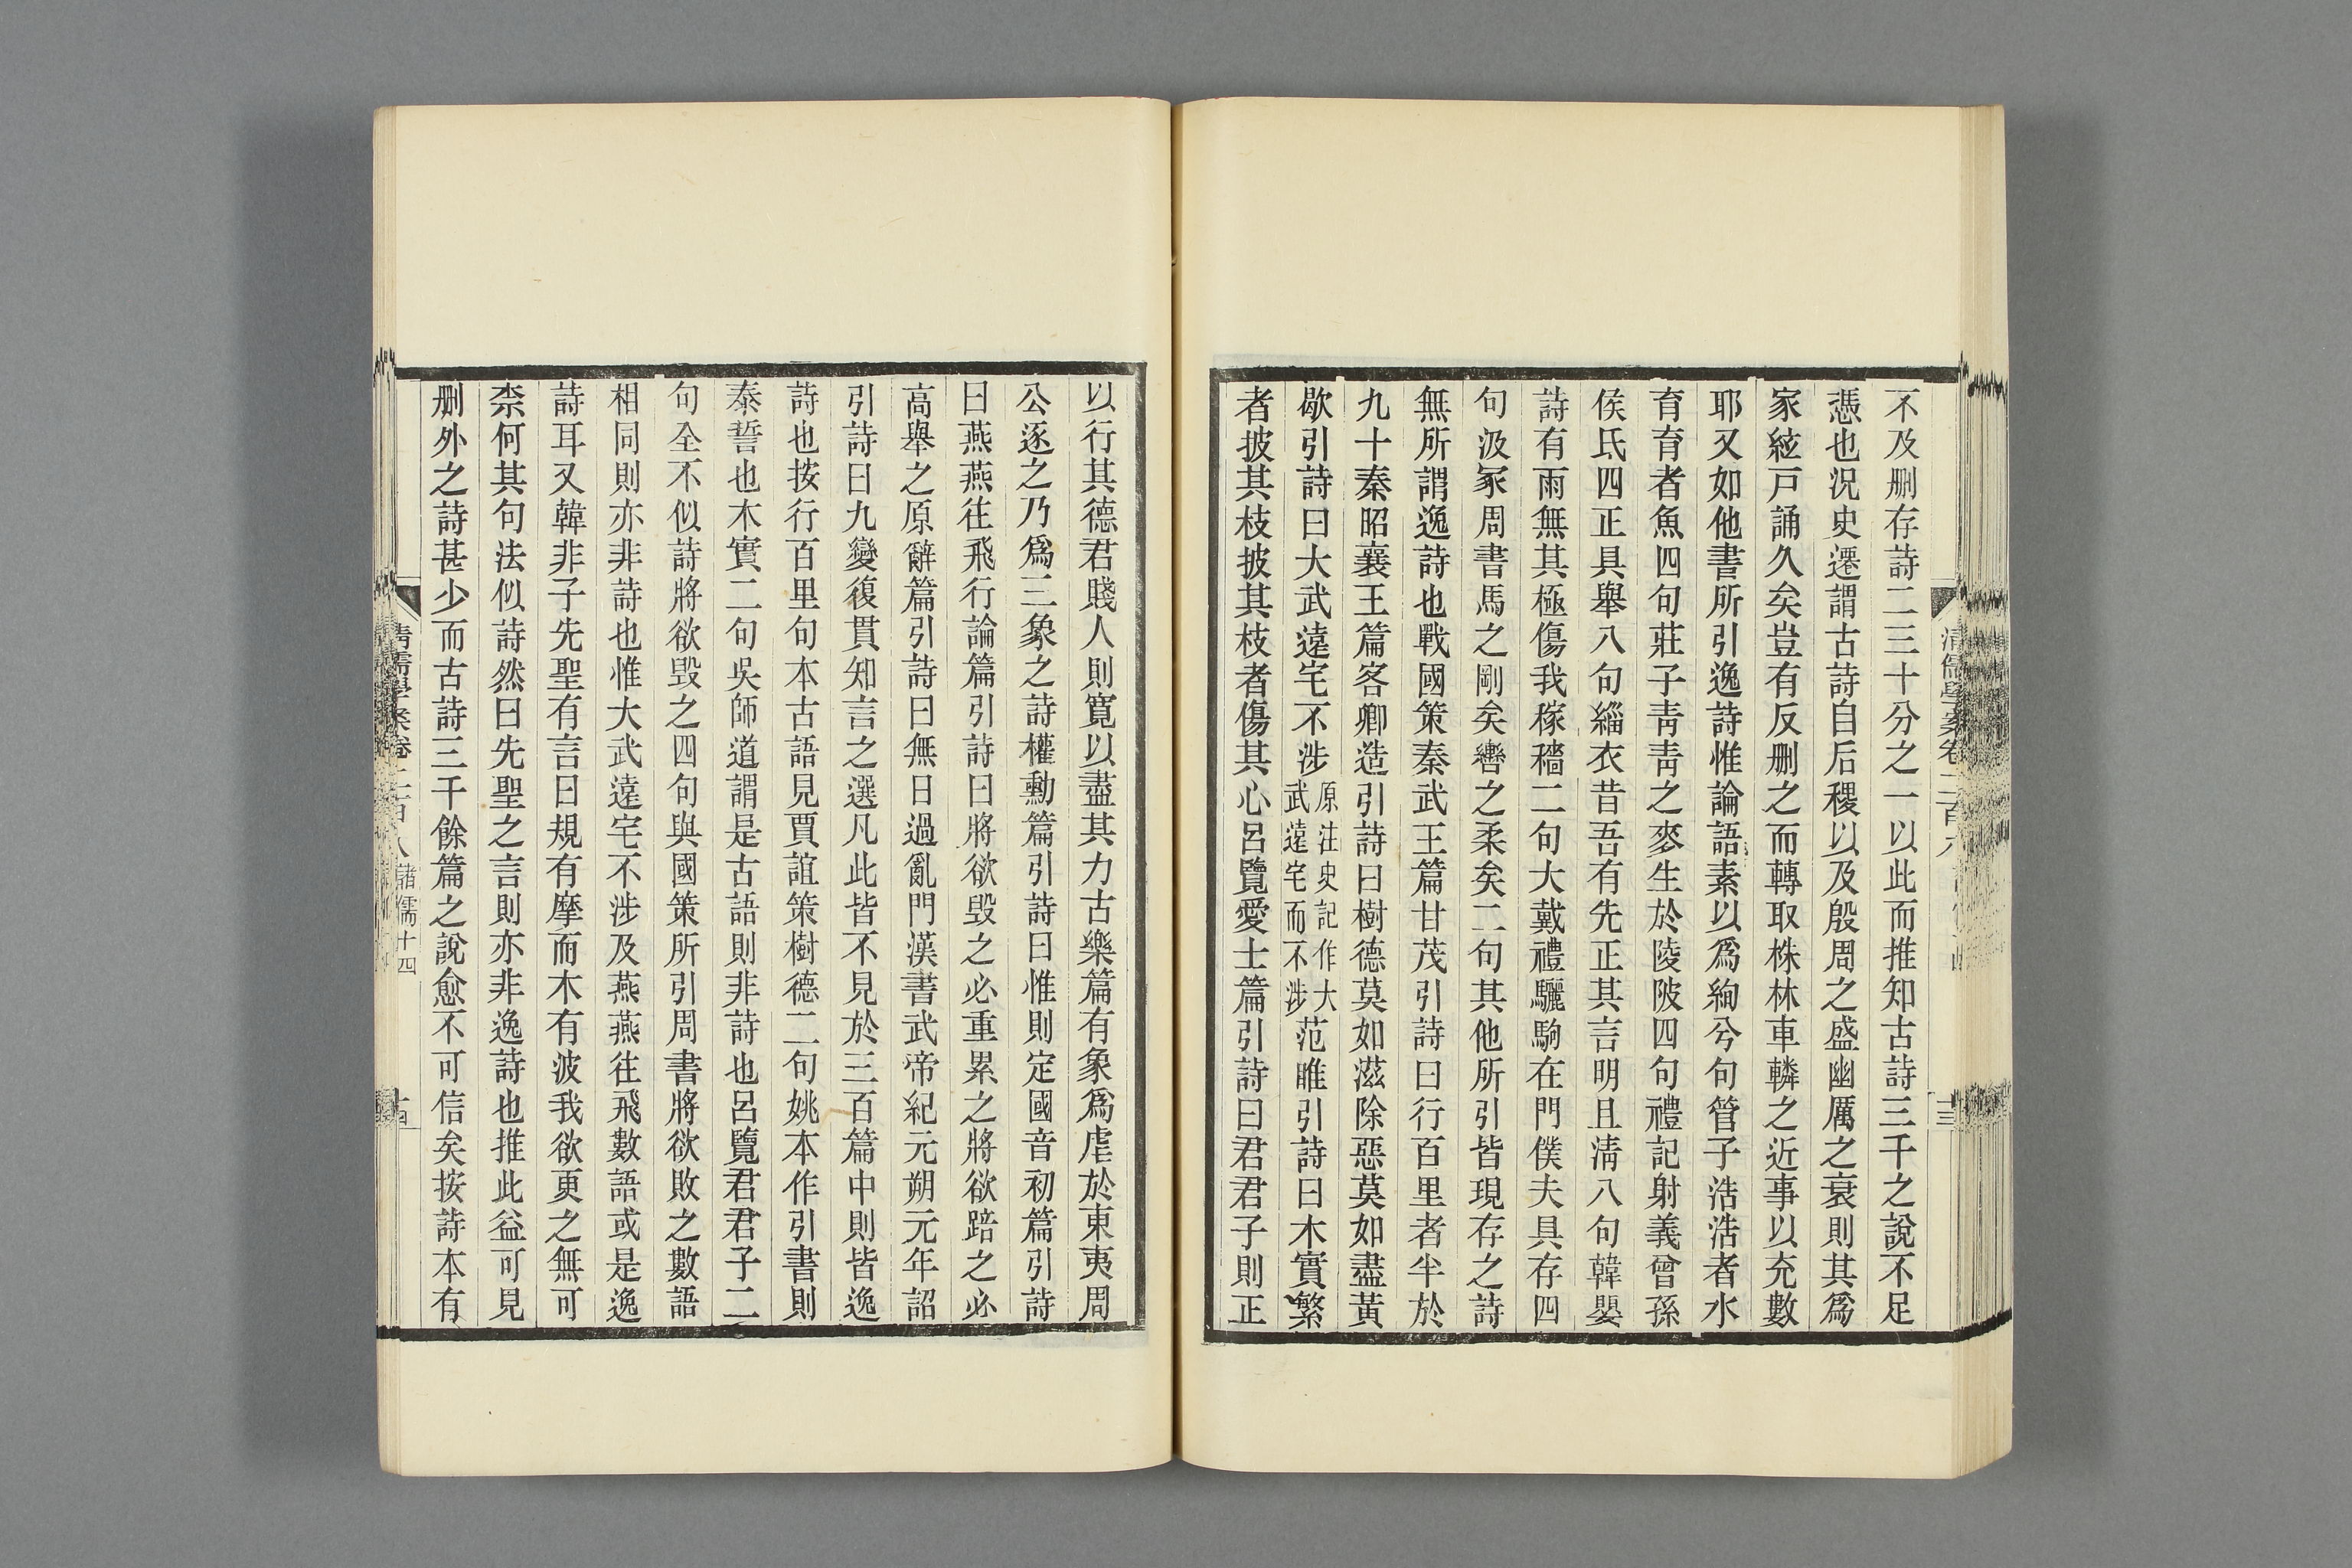 不及删存詩二三十分之一以此而推知古詩三千之說不足
憑也況史遷謂古詩自后稷以及殷周之盛幽厲之衰則其爲
家絃戸誦久矣豈有反删之而轉取株林車轔之近事以充數
耶又如他書所引逸詩惟論語素以爲絢兮句管子浩浩者水
育育者魚四句莊子靑靑之麥生於陵陂四句禮記射義曾孫
侯氏四正具舉八句緇衣昔吾有先正其言明且淸八句韓嬰
詩有雨無其極傷我稼穡二句大戴禮驪駒在門僕夫具存四
句汲冢周書馬之剛矣轡之柔矣二句其他所引皆現存之詩
無所謂逸詩也戰國策秦武王篇甘茂引詩曰行百里者半於
九十秦昭襄王篇客卿造引詩曰樹德莫如滋除惡莫如盡黃
歇引詩曰大武遠宅不涉原注史記作大武遠宅而不涉范雎引詩曰木實繁
者披其枝披其枝者傷其心呂覽愛士篇引詩曰君君子則正
以行其德君賤人則寬以盡其力古樂篇有象爲虐於東夷周
公逐之乃爲三象之詩權勳篇引詩曰惟則定國音初篇引詩
曰燕燕往飛行論篇引詩曰將欲毁之必重累之將欲踣之必
高舉之原辭篇引詩曰無日過亂門漢書武帝紀元朔元年詔
引詩曰九變復貫知言之選凡此皆不見於三百篇中則皆逸
詩也按行百里句本古語見賈誼策樹德二句姚本作引書則
泰誓也木實二句吳師道謂是古語則非詩也呂覽君君子二
句全不似詩將欲毁之四句與國策所引周書將欲敗之數語
相同則亦非詩也惟大武遠宅不涉及燕燕往飛數語或是逸
詩耳又韓非子先聖有言曰規有摩而木有波我欲更之無可
柰何其句法似詩然曰先聖之言則亦非逸詩也推此益可見
删外之詩甚少而古詩三千餘篇之說愈不可信矣按詩本有
清儒學案卷二百
十三
諸儒十四